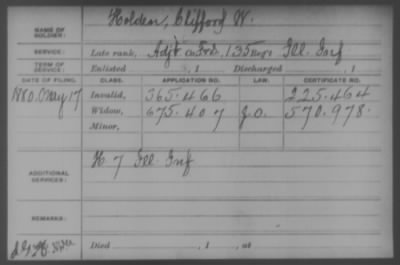 NAME OF SOLDIER: Holden, Clifford W.
SERVICE: Late rank, Adjt 135 Reg't Ill. Inf
TERM OF SERVICE: Enlisted , 1 Discharged , 1
DATE OF FILING. CLASS. APPLICATION NO. LAW. CERTIFICATE NO.
1880. May 17 Invalid, 365.466 225.464
Widow, 675.407 G.O. 570.978.
Minor,
ADDITIONAL SERVICES: H 7 Ill. Inf
REMARKS:
Died , 1 , at